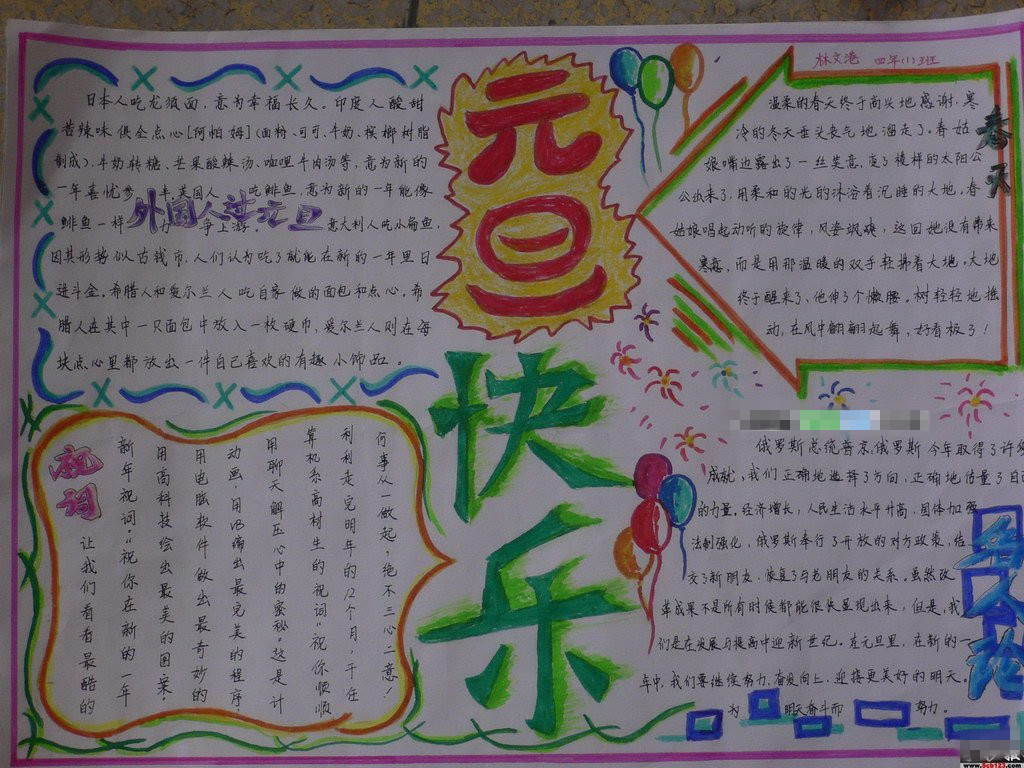 元旦
快乐
林文港 四年(1)班
外国人过元旦
日本人吃龙须面,意为幸福长久。印度人酸甜
苦辣味俱全点心[阿帕姆](面粉、可可、牛奶、槟榔树脂
制成)、牛奶转糖、芒果酸辣汤、咖哩牛肉汤等,意为新的
一年喜忧参 美国人 吃鲱鱼,意为新的一年能像
鲱鱼一样 力争上游。 意大利人吃小扁鱼,
因其形势似古钱币,人们认为吃了就能在新的一年里日
进斗金。希腊人和爱尔兰人吃自家做的面包和点心。希
腊人在其中一只面包中放入一枚硬币,爱尔兰人则在每
块点心里都放出一件自己喜欢的有趣小饰品。
春天
温柔的春天终于高兴地感谢,寒
冷的冬天垂头丧气地溜走了。春姑
娘嘴边露出了一丝笑意,
公出来了,用柔和的光的沐浴着沉睡的大地。春
姑娘唱起动听的旋律,风姿飒爽,这回她没有带来
寒意,而是用那温暖的双手轻拂着大地。大地
终于醒来了,他伸了个懒腰。树轻轻地摇
动,在风中翩翩起舞,好看极了!
祝词
让我们看看最酷的
新年祝词:“祝你在新的一年
用高科技绘出最美的图案。
用电脑软件做出最奇妙的
动画,用VB编出最完美的程序
用聊天解压心中的密秘。”这是计
算机系高材生的祝词“祝你顺顺
利利走完明年的12个月,于在
何事从一做起,绝不三心二意!
俄罗斯总统普京,俄罗斯今年取得了许多
成就,我们正确地选择了方向,正确地估量了自己
的力量。经济增长,人民生活水平升高,国体加强
法制强化,俄罗斯奉行了开放的对方政策,结
交了新朋友,恢复了与老朋友的关系。虽然改
革成果不是所有时候都能很快显现出来,但是,我
们是在发展与提高中迎新世纪。在元旦里,在新的一
年中,我们要继续努力,奋发向上,迎接更美好的明天。
为 明天奋斗而 努力。